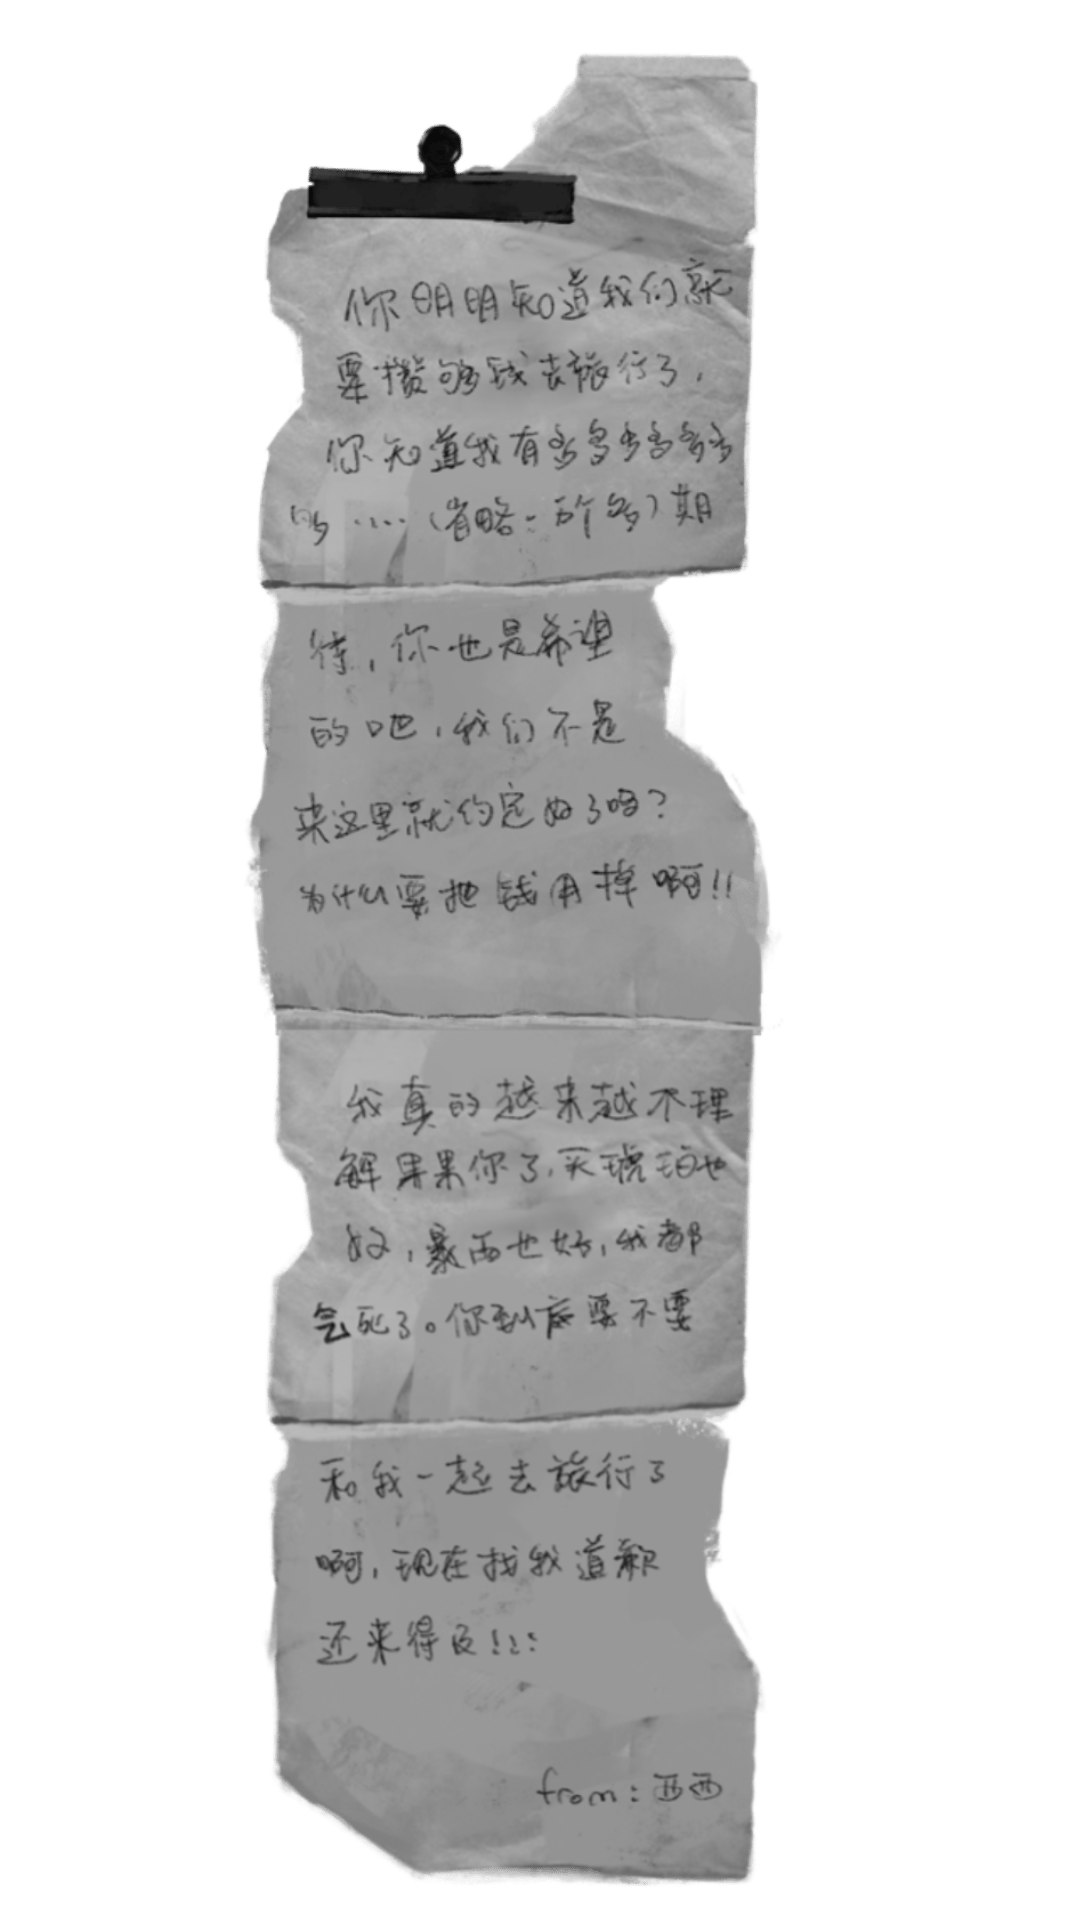 你明明知道我们就
要攒够钱去旅行了，
你知道我有多多多多多多
的……（省略一万个多）期
待，你也是希望
的吧，我们不是
来这里就约定好了吗？
为什么要把钱用掉啊！！
我真的越来越不理
解果果你了，买琥珀也
好，豪西也好，我都
气死了。你到底要不要
和我一起去旅行了
啊，现在找我道歉
还来得及！！！
from：西西